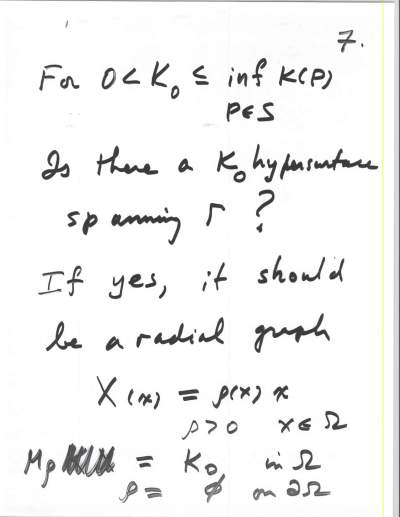 7.
For 0 < K₀ ≤ inf K(P)
P∈S
Is there a K₀ hypersurface
spanning Γ ?
If yes, it should
be a radial graph
X(x) = ρ(x) x
ρ > 0 x ∈ Ω
Mρ = K₀ in Ω
ρ = φ on ∂Ω